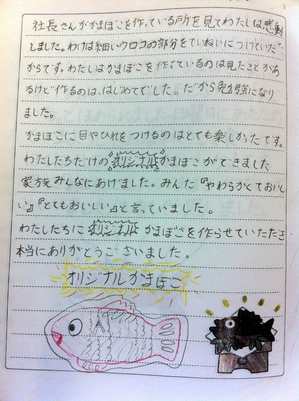 社長さんがかまぼこを作っている所を見てわたしは感動
しました。わけは細いウロコの部分をていねいにつけていた
からです。わたしはかまぼこを作っているのは見たことがあ
るけど作るのは、はじめてでした。だから勉強になり
ました。
かまぼこに目やひれをつけるのはとても楽しかったです。
わたしたちだけのオリジナルかまぼこができました
家族みんなにあげました。みんな『やわらかくておいし
い』『とてもおいしい』と言っていました。
わたしたちにオリジナルかまぼこを作らせていただき
本当にありがとうございました。
オリジナルかまぼこ